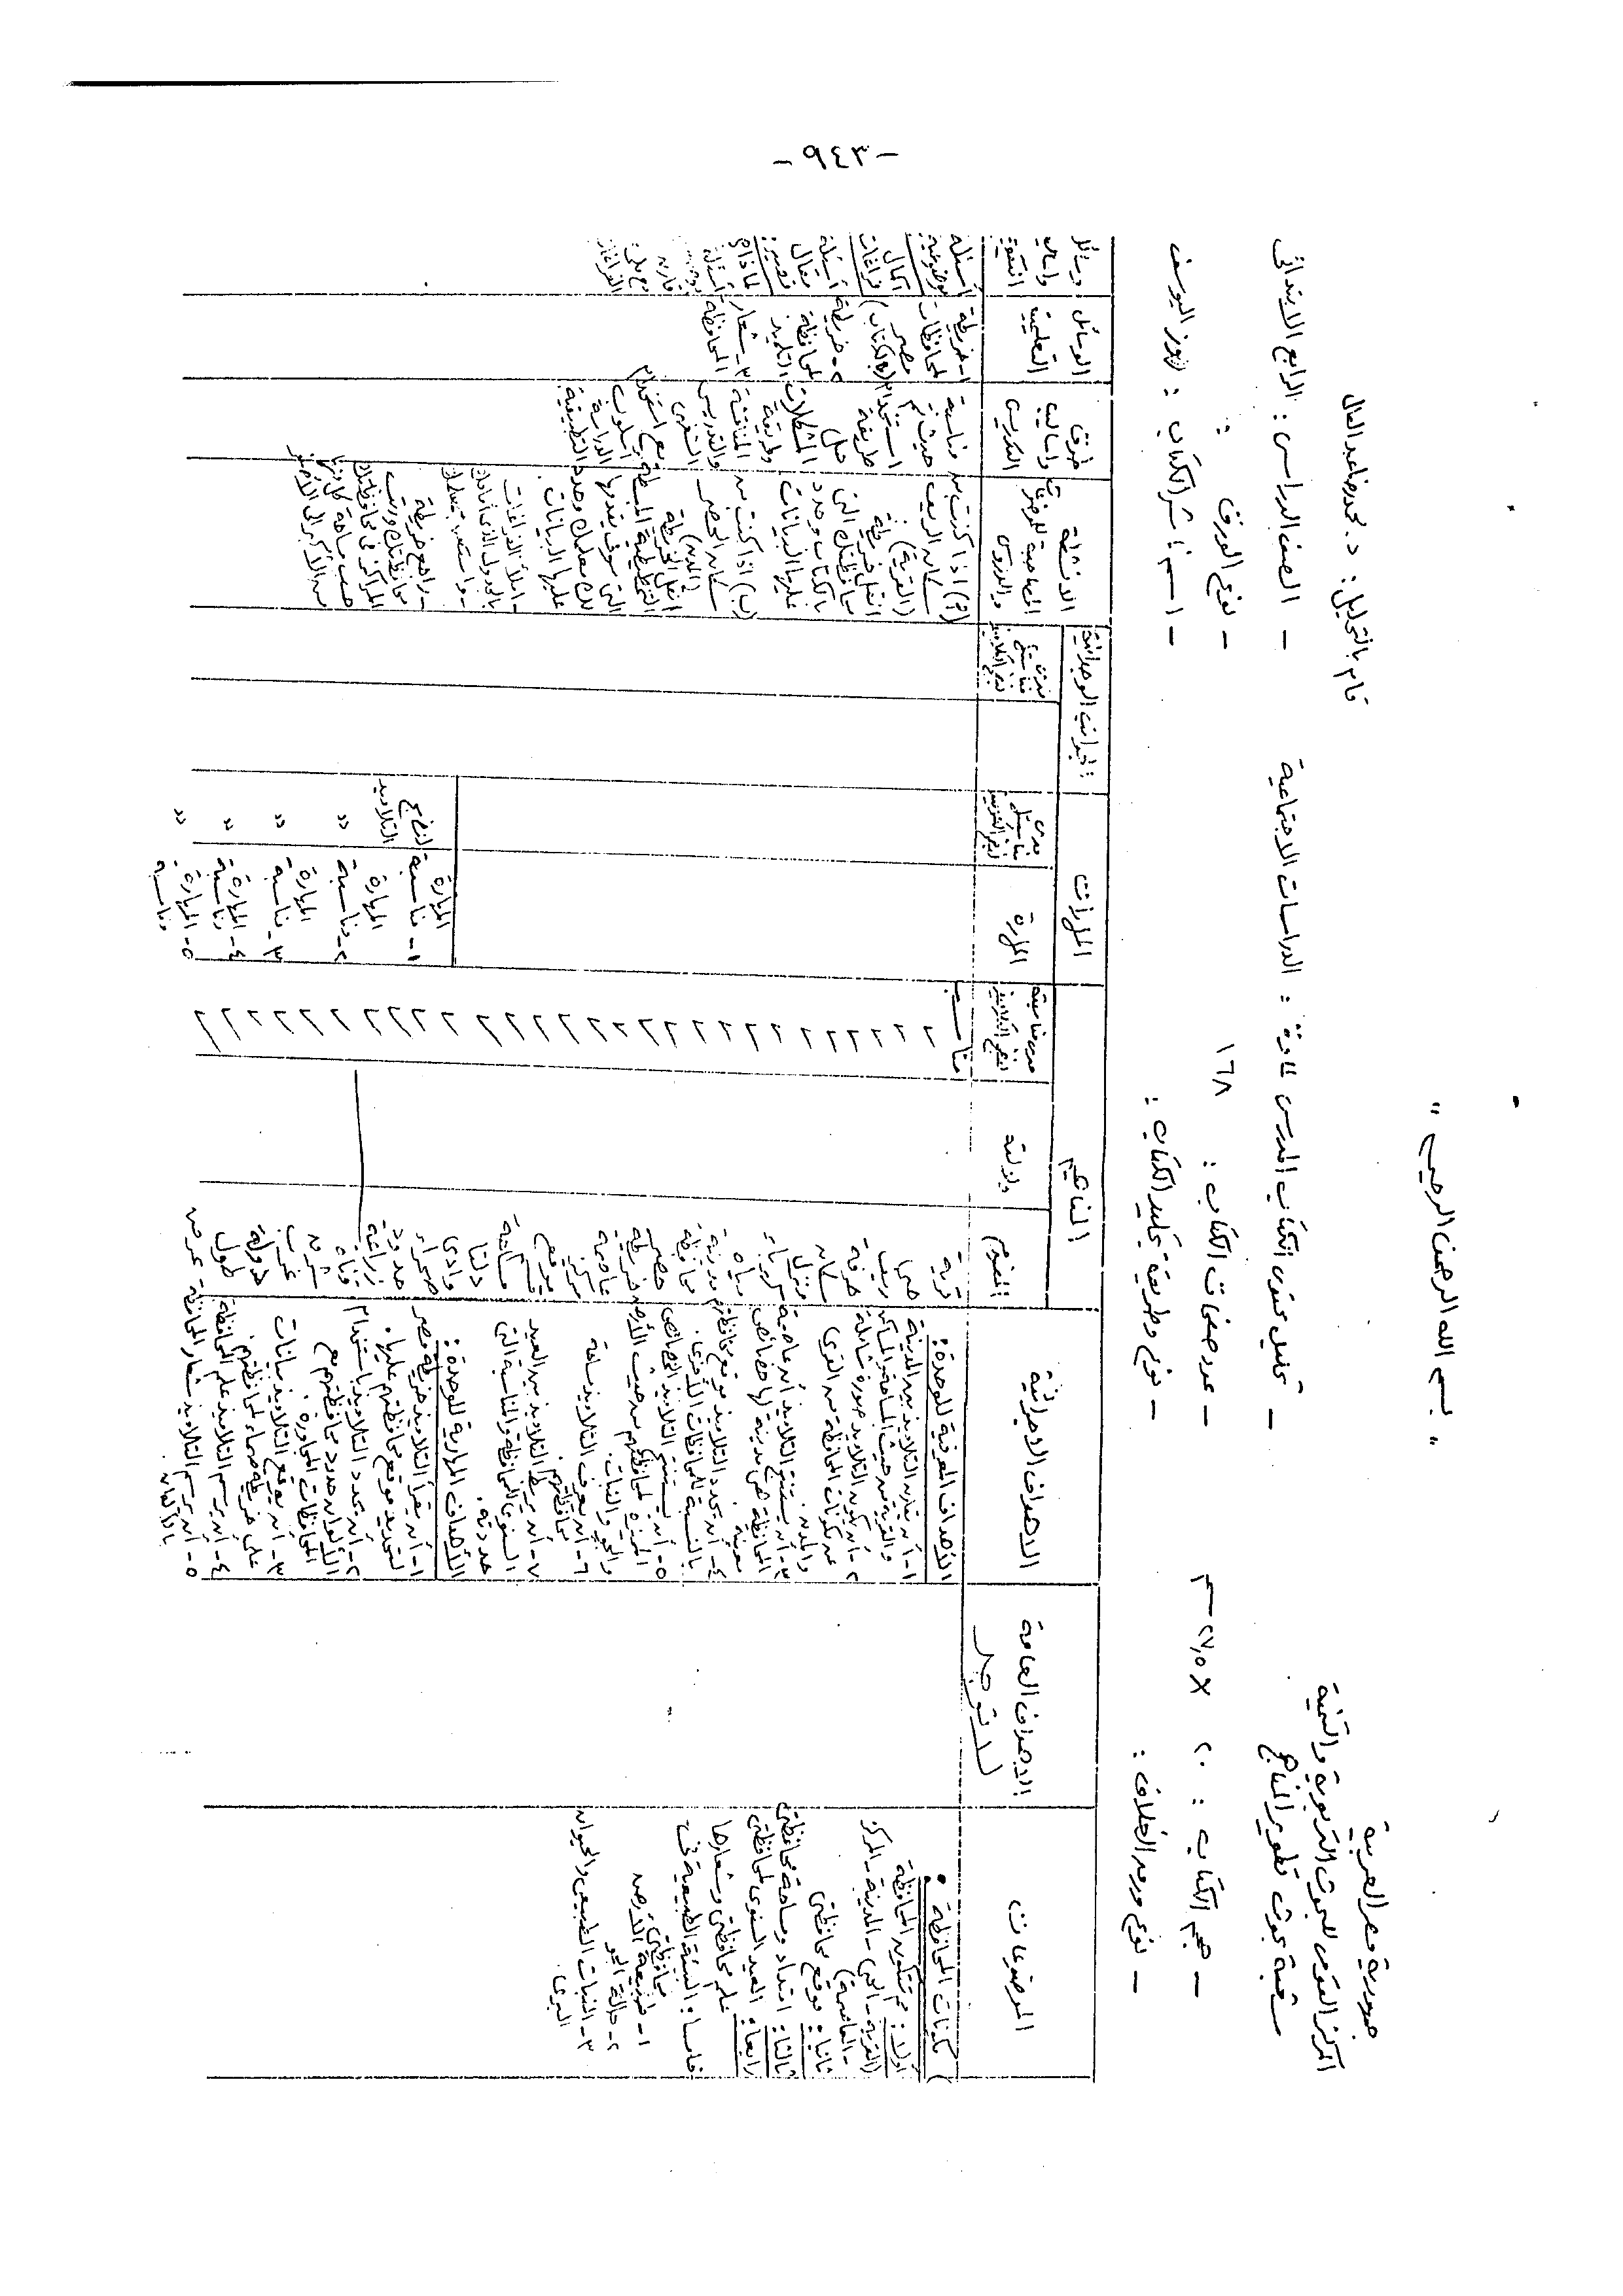 - ٩٤٣ -
" بسم الله الرحمن الرحيم "
جمهورية مصر العربية
المركز القومى للبحوث التربوية والتنمية
شعبة بحوث تطوير المناهج
قام بالتحليل : د. محمد عبد العال
- تحليل محتوى الكتاب المدرسى لمادة : الدراسات الاجتماعية
- الصف الدراسى : الرابع الابتدائى
- حجم الكتاب : ٢٠ × ٢٧,٥ سم
- عدد صفحات الكتاب : ١٦٨
- نوع الورق :
- نوع ورق الغلاف :
- نوع وطريقة تجليد الكتاب :
- اسم ناشر الكتاب : روز اليوسف
الموضوعات
الاهداف العامة
الاهداف الاجرائية
المفاهيم
المفهوم
دلالته
المهارات
المهارة
الجوانب الوجدانية
الانشطة
المصاحبة للموضوعات
والدروس
طرق
واساليب
التدريس
الوسائل
التعليمية
وسائل
واساليب
التقويم
مكونات المحافظة
أولا : مم تتكون المحافظة
(القرية - الحى - المدينة - المركز
- العاصمة)
ثانيا : موقع محافظتى
ثالثا : امتداد ومساحة محافظتى
رابعا : العيد السنوى لمحافظتى
علم محافظتى وشعارها
خامسا : البيئة الطبيعية فى
محافظتى
١- طبيعة الأرض
٢- حالة الجو
٣- النبات الطبيعى والحيوان
البرى.
لا توجد
الأهداف المعرفية للوحدة :
١- أن يقارن التلاميذ بين المدينة
والقرية من حيث المساحة والمساكن
٢- أن يكون التلاميذ صورة شاملة
عن مكونات المحافظة من القرى
والمدن.
٣- أن يستنتج التلاميذ أن عاصمة
المحافظة هى مدينة لها خصائص
معينة.
٤- أن يحدد التلاميذ موقع محافظتهم
بالنسبة للمحافظات الأخرى.
٥- أن يستنتج التلاميذ الخصائص
المميزة لمحافظتهم من حيث الأرض
والجو والنبات.
٦- أن يعرف التلاميذ مساحة
محافظتهم.
٧- أن يربط التلاميذ بين العيد
السنوى للمحافظة والمناسبة التى
حددته.
الأهداف المهارية للوحدة :
١- أن يقرأ التلاميذ خريطة مصر
لتحديد موقع محافظتهم عليها.
٢- أن يحدد التلاميذ باستخدام
الألوان حدود محافظتهم مع
المحافظات المجاورة.
٣- أن يوقع التلاميذ بيانات
على خريطة صماء لمحافظتهم.
٤- أن يرسم التلاميذ علم المحافظة
٥- أن يرسم التلاميذ شعار المحافظة
باتقان.
قرية
حى
ريف
حرفة
سكان
منزل
كهرباء
مياه
مدينة
محافظة
حضر
خريطة
عاصمة
مركز
موقع
مساحة
دلتا
وادى
صحراء
حدود
زراعة
قناة
شرق
غرب
دولة
طول
عرض
مناسب
١- المهارة مناسبة
لنضج التلاميذ
٢- المهارة مناسبة "
٣- المهارة مناسبة "
٤- المهارة مناسبة "
٥- المهارة مناسبة "
(أ) اذا كنت من
سكان الريف
(القرية) :
انقل خريطة
محافظتك التى
بالكتاب وحدد
عليها البيانات
(ب) اذا كنت من
سكان الحضر
(المدن)
انقل الخريطة
التخطيطية المبسطة
التى سوف يقدمها
لك معلمك وحدد
عليها البيانات.
- املأ الفراغات
بالجدول الذى أمامك
- راجع خريطة
محافظتك ورتب
المراكز فى محافظتك
حسب مساحة كل منها
من الأكبر الى الأصغر
مناسبة
حيث تم
استخدام
طريقة
حل
المشكلات
وطريقة
المناقشة
والتدريس
مع استخدام
أسلوب
الدراسة
التطبيقية
١- خريطة
لمحافظات
مصر
(بالكتاب)
٢- خريطة
لمحافظة
التلميذ
٣- شعار
المحافظة
أسئلة
موضوعية
اكمال
فراغات
أسئلة
مقال
قصير